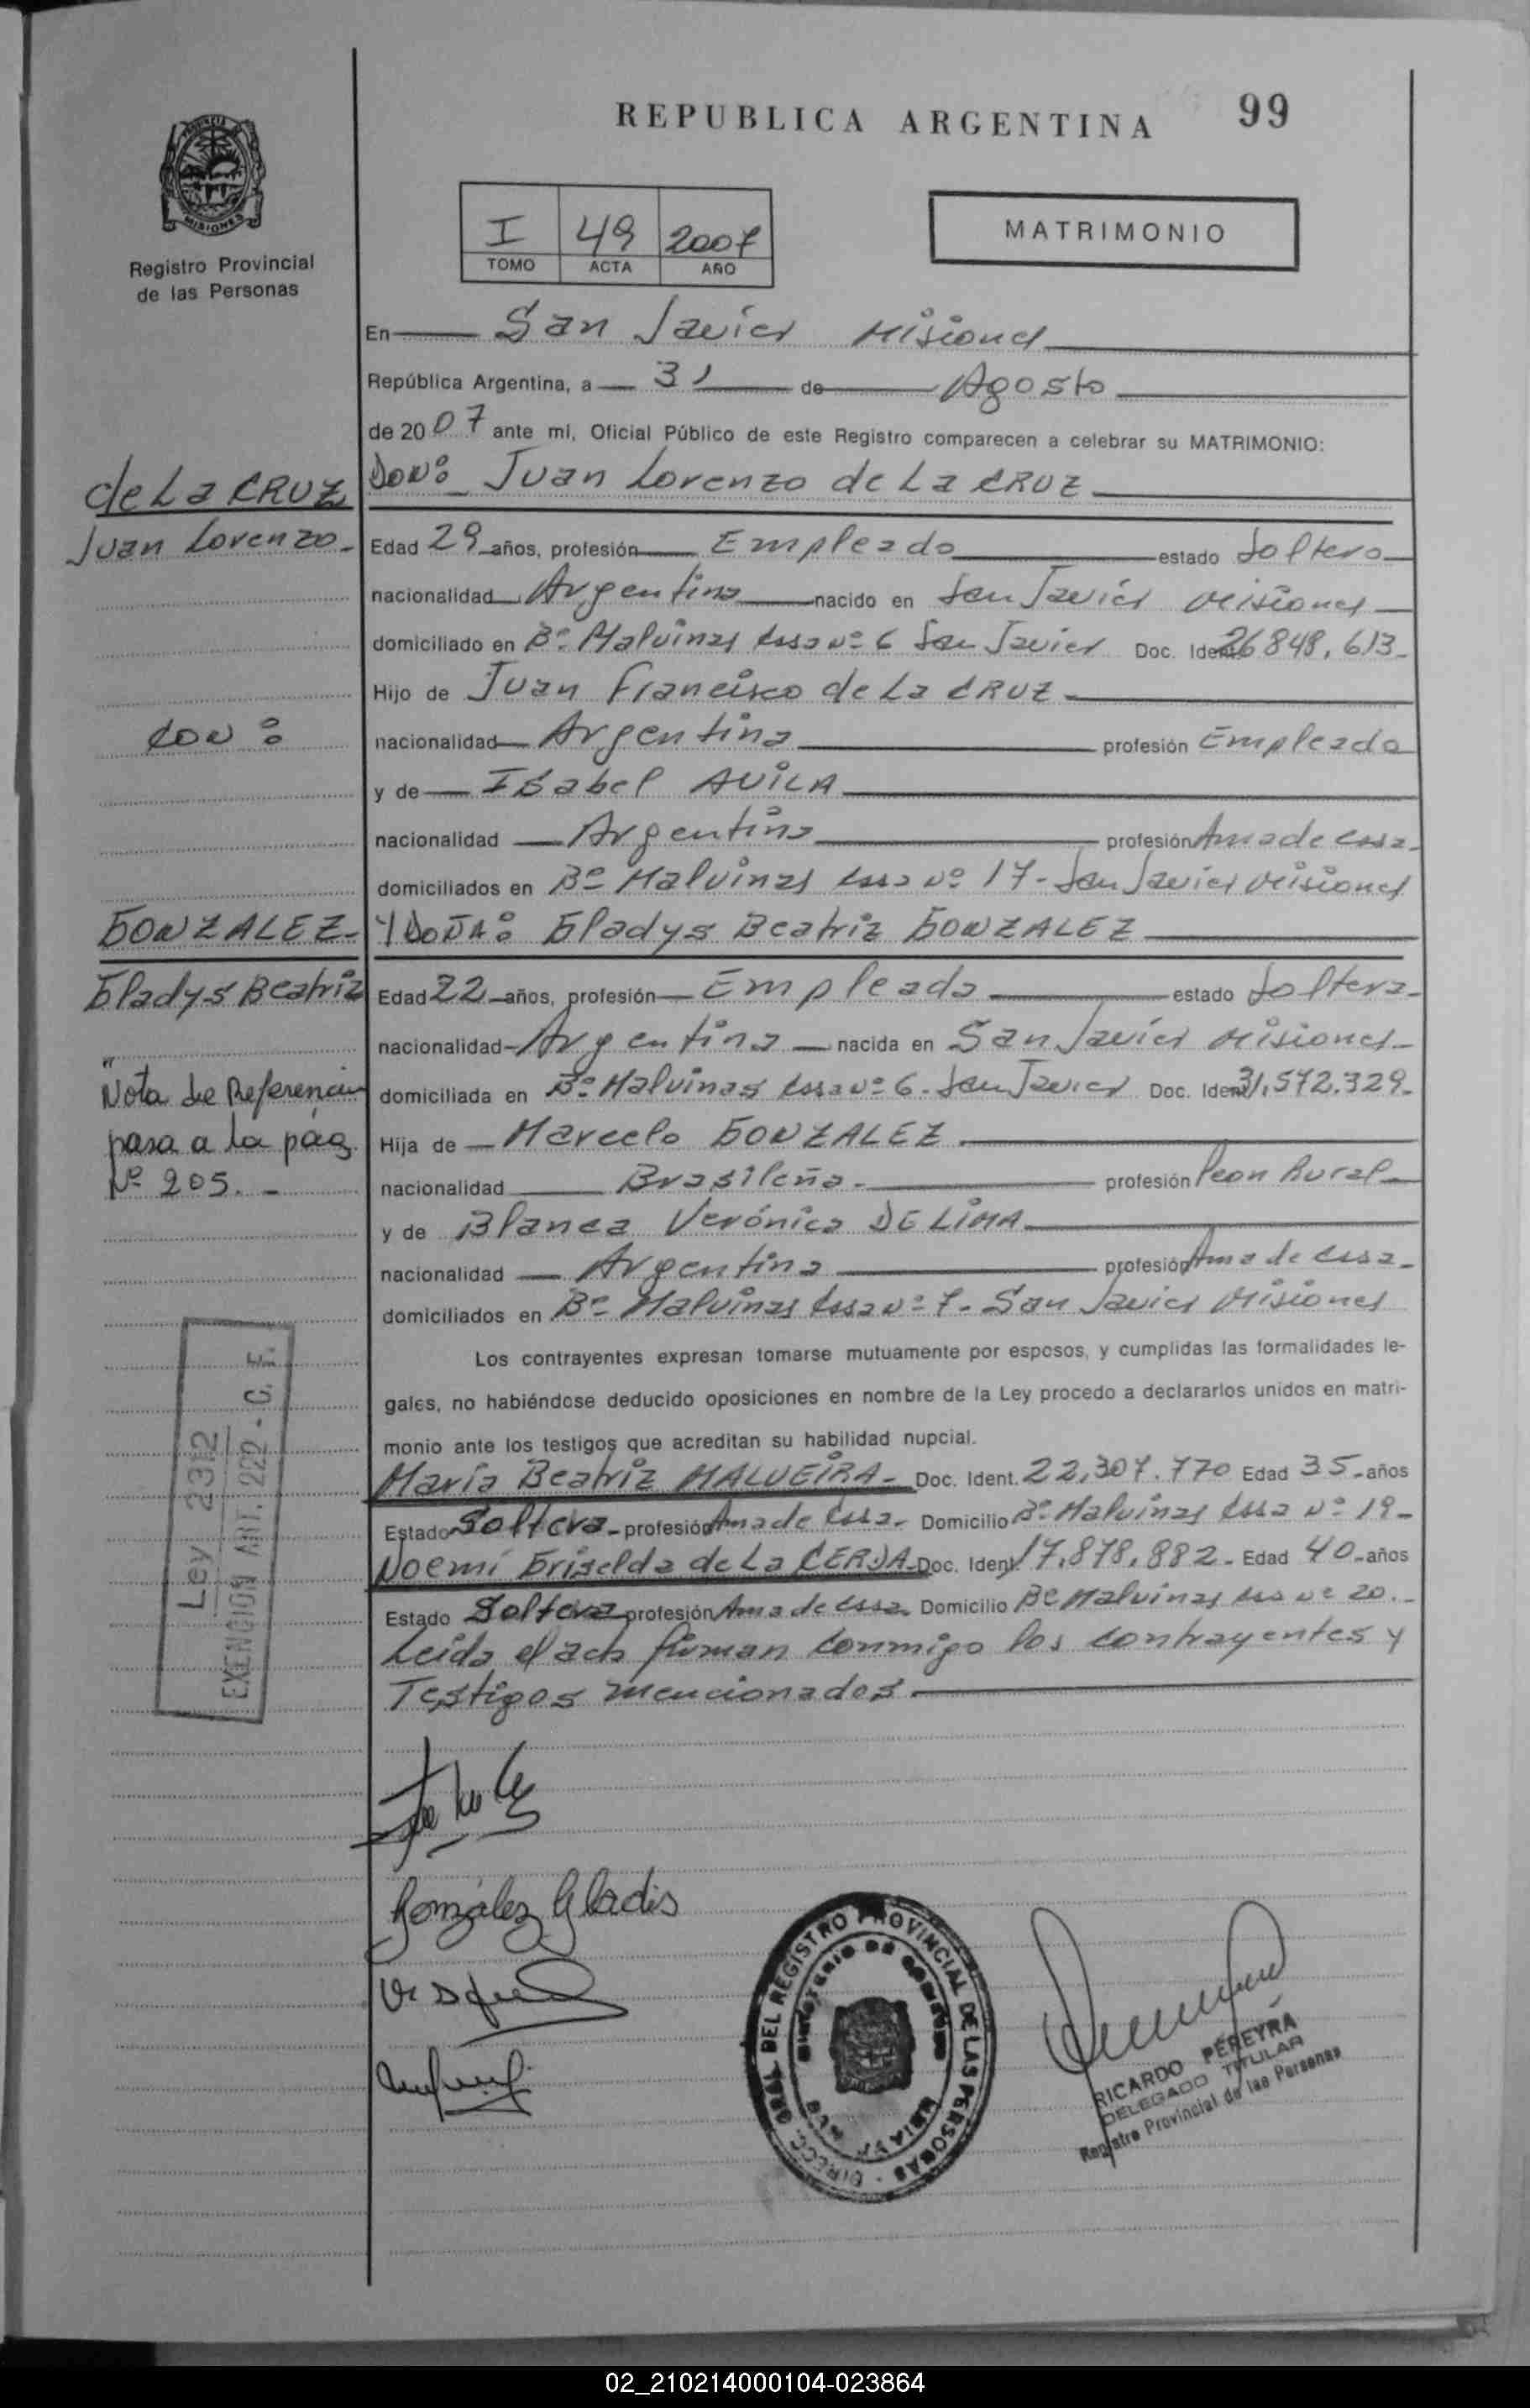 REPUBLICA ARGENTINA 99
PROVINCIA DE
MISIONES
Registro Provincial
de las Personas
I 49 2007
TOMO ACTA AÑO
MATRIMONIO
En San Javier Misiones
República Argentina, a 31 de Agosto
de 2007 ante mi, Oficial Público de este Registro comparecen a celebrar su MATRIMONIO:
DON: Juan Lorenzo de La CRUZ
de La CRUZ
Juan Lorenzo-
Edad 29 años, profesión Empleado estado Soltero
nacionalidad Argentina nacido en San Javier Misiones
domiciliado en Bº Malvinas Casa Nº 6 San Javier Doc. Ident. 26.848.613-
Hijo de Juan Francisco de La CRUZ
CON:
nacionalidad Argentina profesión Empleado
y de Isabel AVILA
nacionalidad Argentina profesión Ama de casa-
domiciliados en Bº Malvinas Casa Nº 17- San Javier Misiones
GONZALEZ- Y DOÑA: Gladys Beatriz GONZALEZ
Gladys Beatriz
Edad 22 años, profesión Empleada estado Soltera-
nacionalidad Argentina nacida en San Javier Misiones-
domiciliada en Bº Malvinas Casa Nº 6. San Javier Doc. Ident. 31.572.329-
Nota de Referencia
pasa a la pág.
Nº 205.-
Hija de Marcelo GONZALEZ
nacionalidad Brasileña- profesión Peon Rural
y de Blanca Verónica DE LIMA
nacionalidad Argentina profesión Ama de casa-
domiciliados en Bº Malvinas Casa Nº 7- San Javier Misiones
Los contrayentes expresan tomarse mutuamente por esposos, y cumplidas las formalidades le-
gales, no habiéndose deducido oposiciones en nombre de la Ley procedo a declararlos unidos en matri-
monio ante los testigos que acreditan su habilidad nupcial.
María Beatriz MALVEIRA- Doc. Ident. 22.307.770 Edad 35 años
Estado Soltera- profesión Ama de Casa- Domicilio Bº Malvinas Casa Nº 19-
Noemí Griselda de La CERDA- Doc. Ident. 17.878.882- Edad 40 años
Estado Soltera profesión Ama de casa. Domicilio Bº Malvinas Casa Nº 20.-
Leída el acta firman conmigo los contrayentes y
Testigos mencionados
Ley 2312
EXENCION ART. 222 - C. F.
González Gladis
DIRECC. GRAL. DEL REGISTRO PROVINCIAL DE LAS PERSONAS
MINISTERIO DE GOBIERNO
RICARDO PEREYRA
DELEGADO TITULAR
Registro Provincial de las Personas
02_210214000104-023864